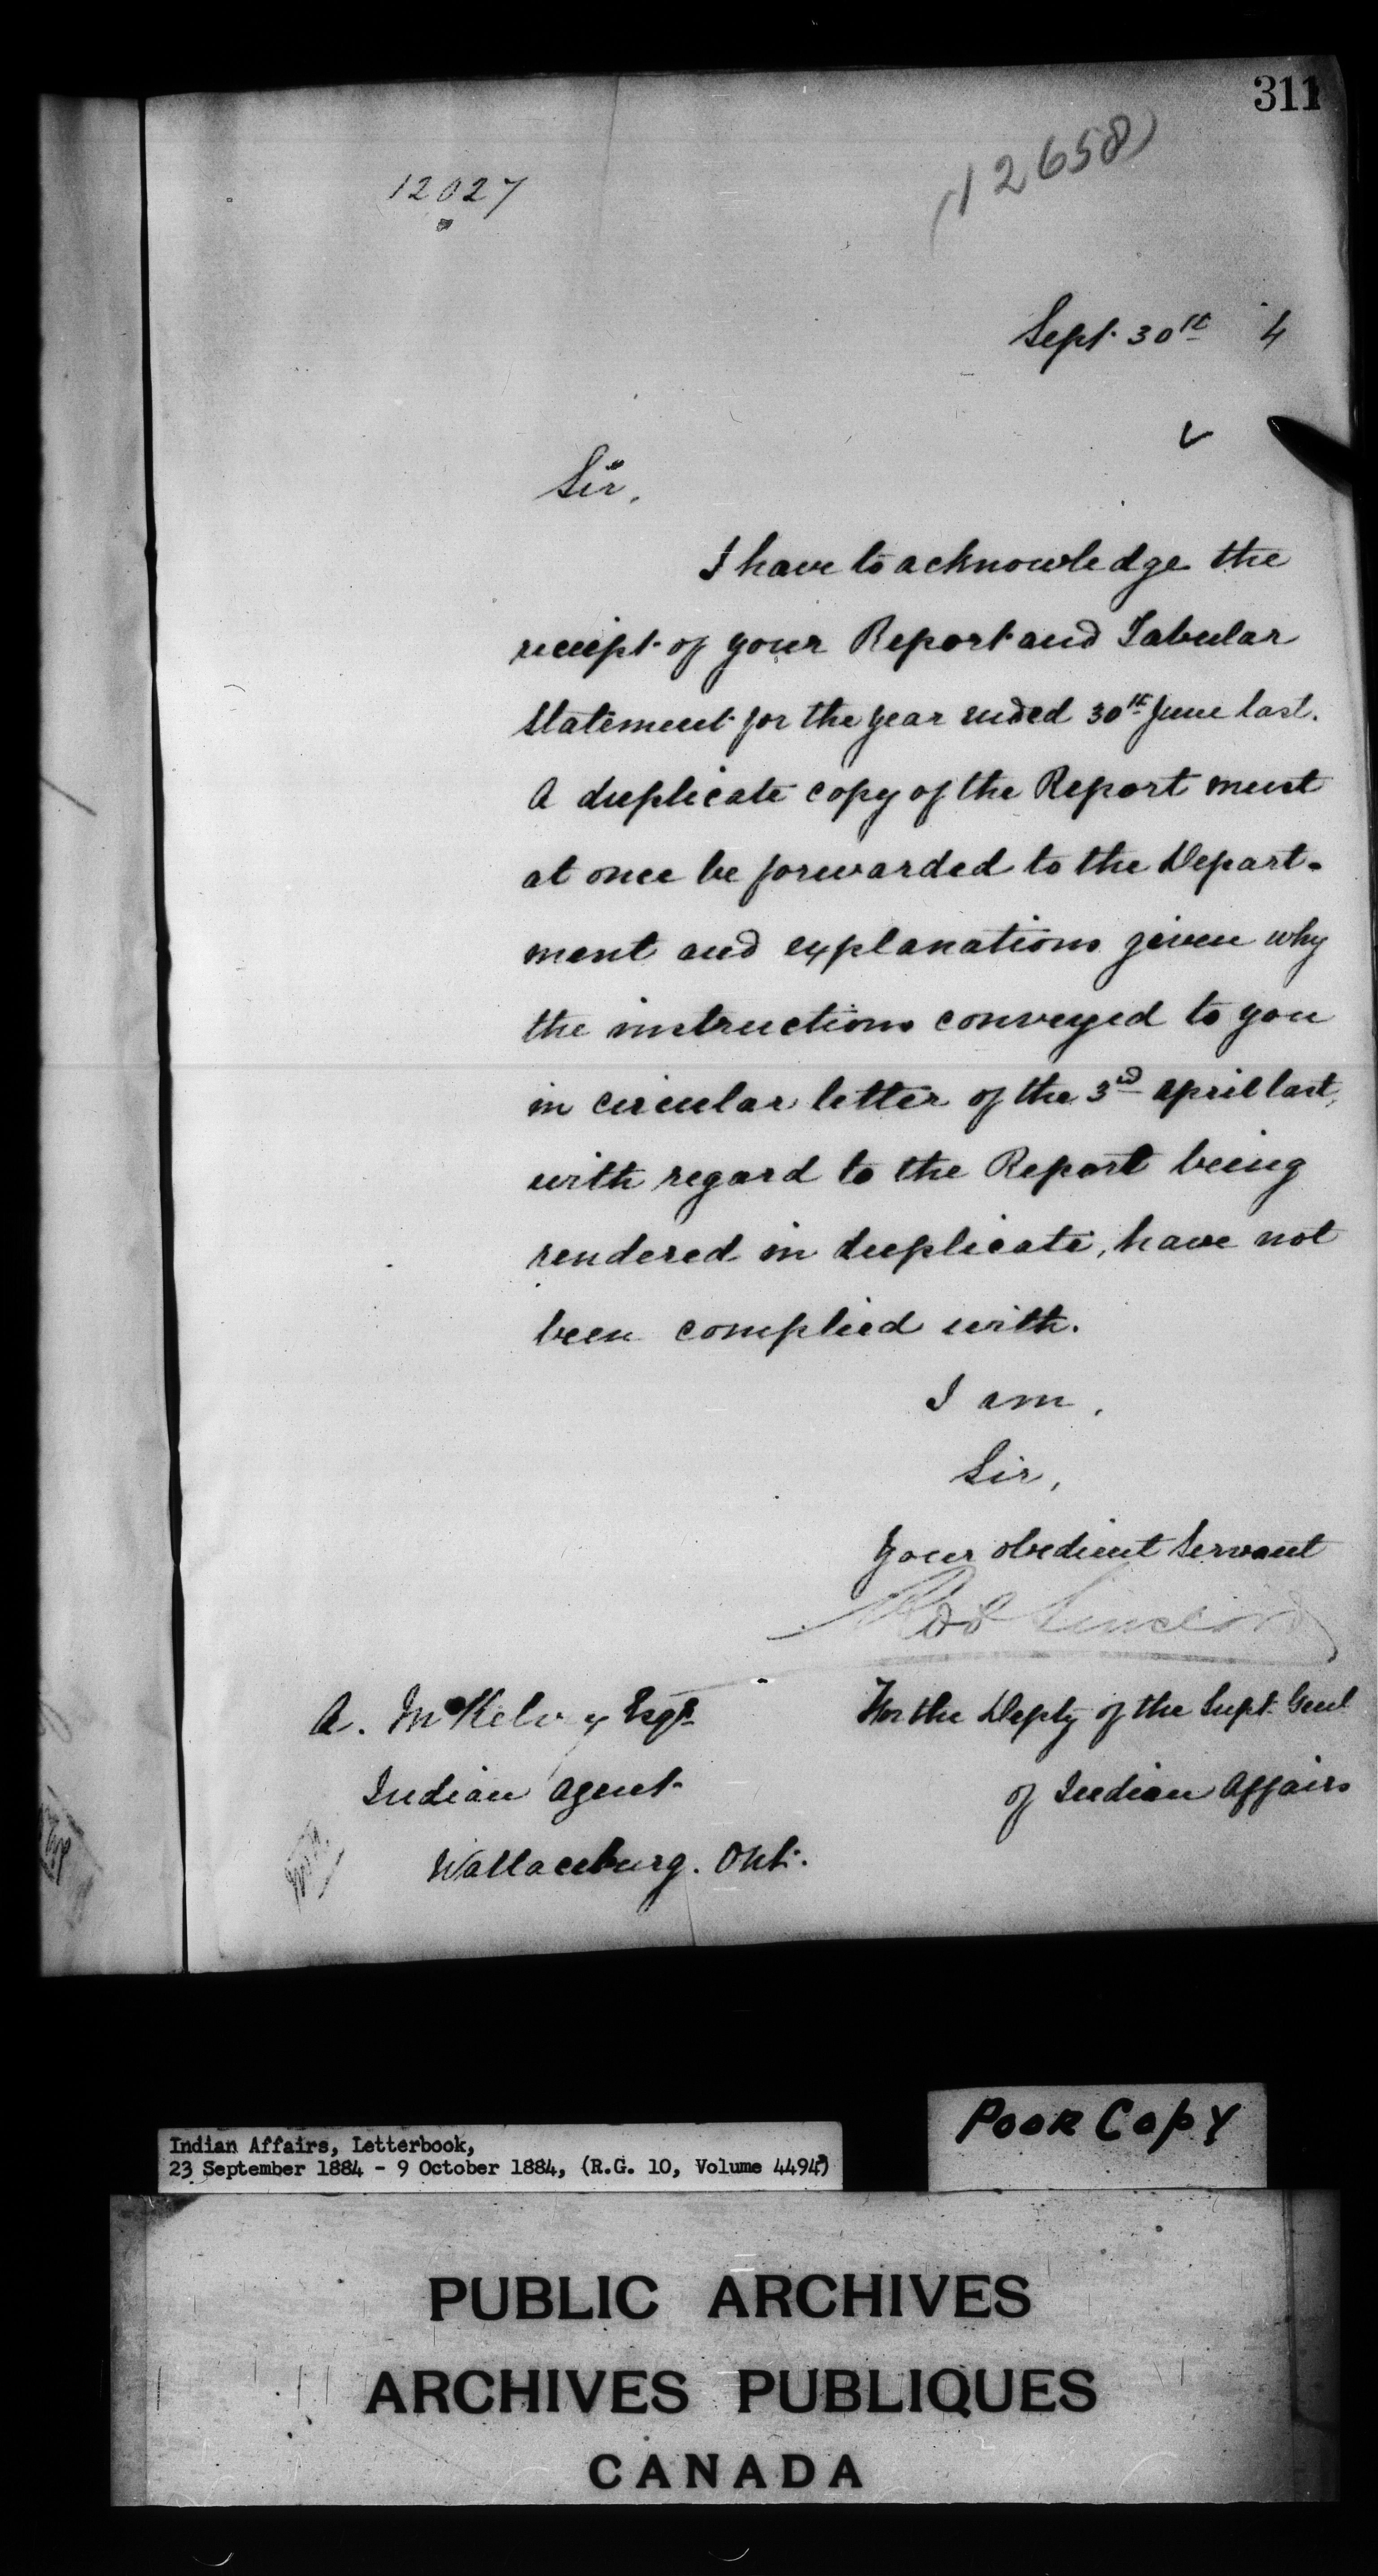 311
12027
(12658)
Sept. 30th 4
Sir,
I have to acknowledge the
receipt of your Report and Tabular
Statement for the year ended 30th June last.
A duplicate copy of the Report must
at once be forwarded to the Depart-
ment and explanations given why
the instructions conveyed to you
in circular letter of the 3rd April last,
with regard to the Report being
rendered in duplicate, have not
been complied with.
I am,
Sir,
Your obedient Servant
Sinclair
A. McKelvey Esqr
For the Depty of the Supt. Genl
Indian Agent
of Indian Affairs
Wallaceburg. Ont.
Poor Copy
Indian Affairs, Letterbook,
23 September 1884 - 9 October 1884, (R.G. 10, Volume 4494)
PUBLIC ARCHIVES
ARCHIVES PUBLIQUES
CANADA